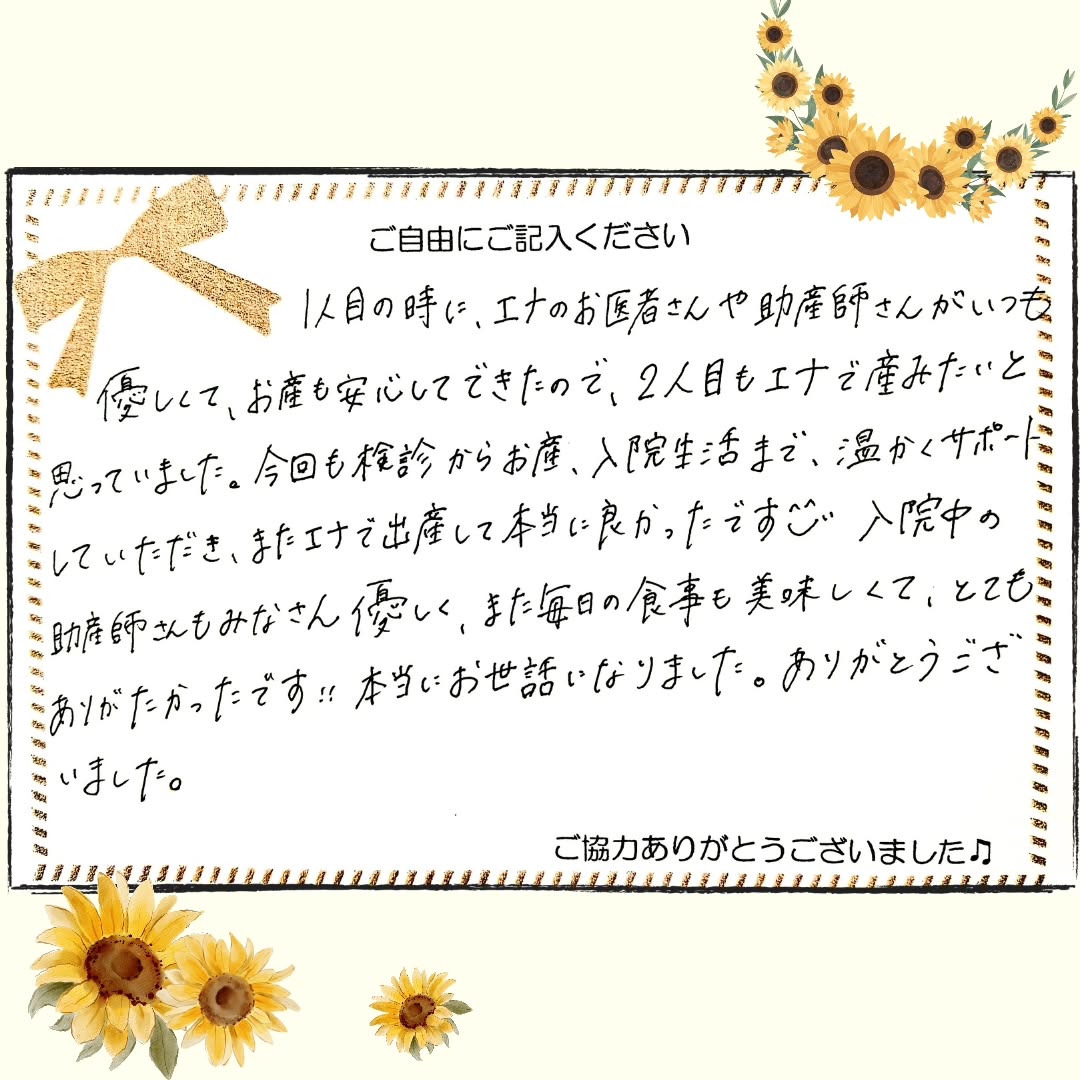 ご自由にご記入ください
1人目の時に、エナのお医者さんや助産師さんがいつも
優しくて、お産も安心してできたので、2人目もエナで産みたいと
思っていました。今回も検診からお産、入院生活まで、温かくサポート
していただき、またエナで出産して本当に良かったです 入院中の
助産師さんもみなさん優しく、また毎日の食事も美味しくて、とても
ありがたかったです!! 本当にお世話になりました。ありがとうござ
いました。
ご協力ありがとうございました♫